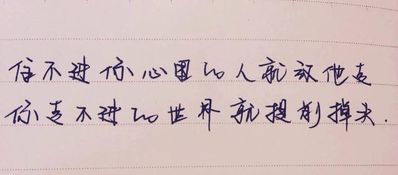 住不进你心里的人就放他走
你走不进的世界就提前掉头.